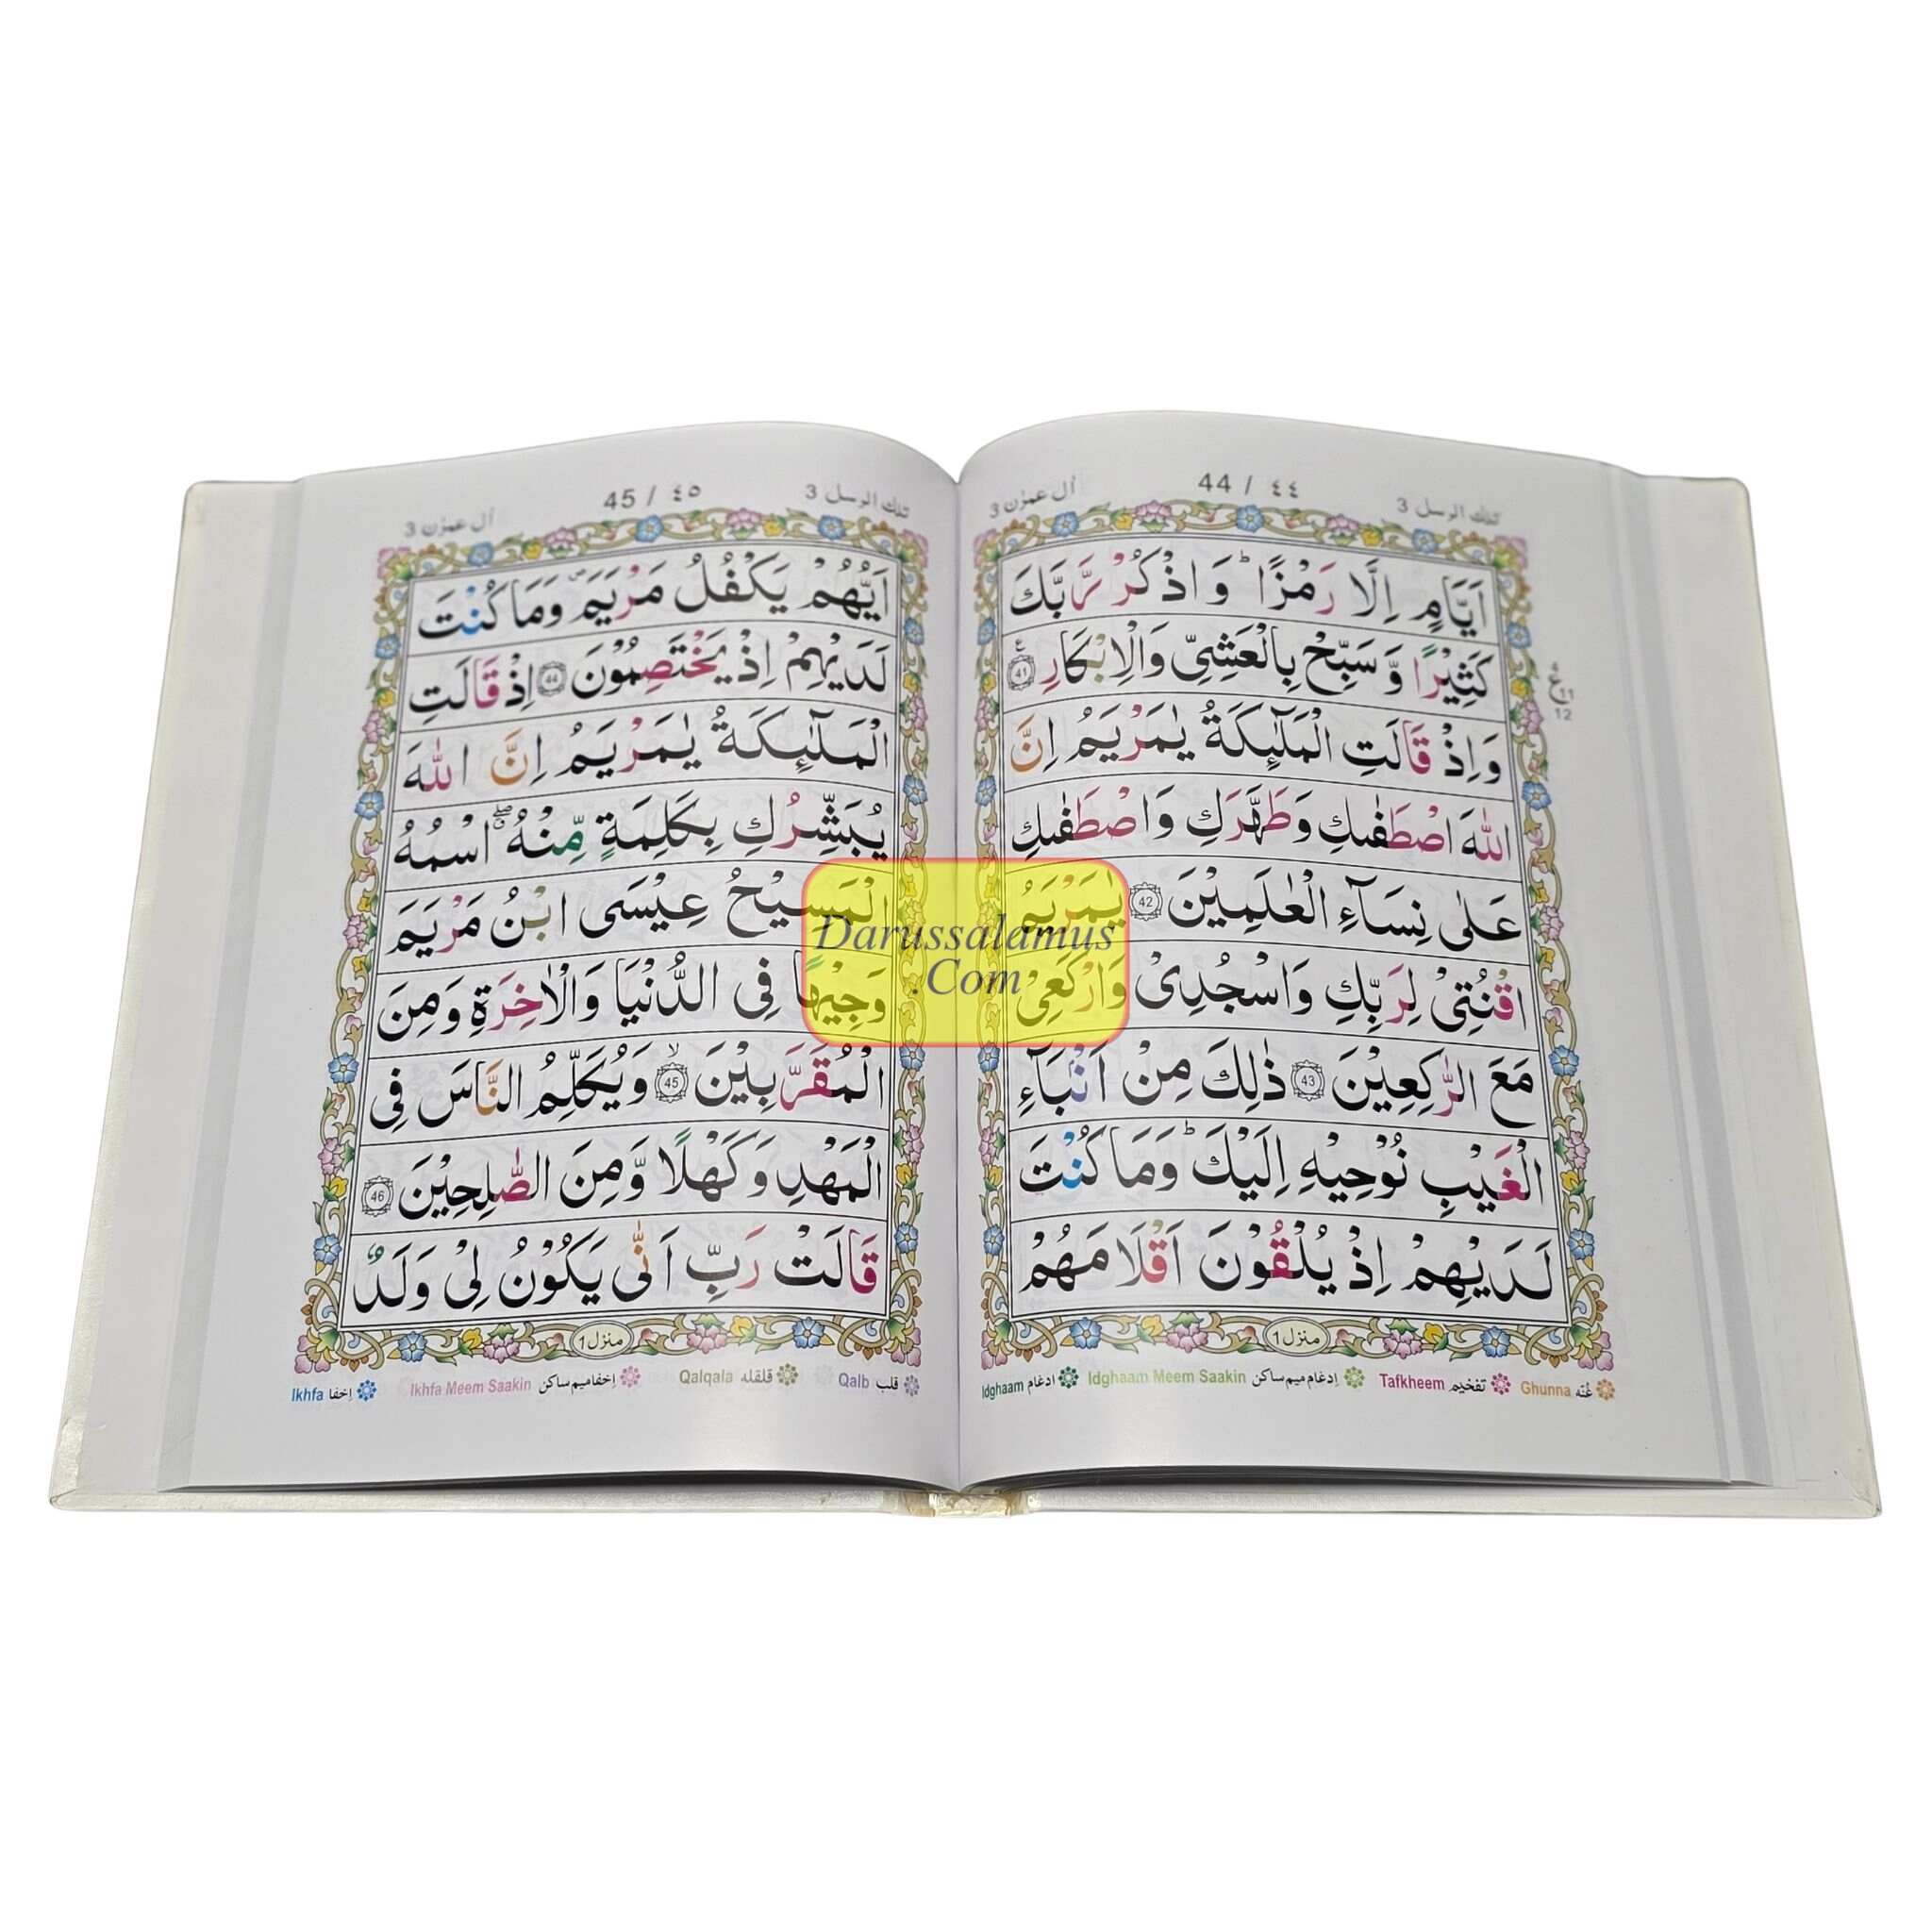 تلك الرسل 3 44 / ٤٤ اٰل عمرٰن 3
اَيَّامٍ اِلَّا رَمْزًا ؕ وَ اذْكُرْ رَّبَّكَ
كَثِيْرًا وَّ سَبِّحْ بِالْعَشِيِّ وَالْاِبْكَارِ 41 ع
ع 4 11 12
وَ اِذْ قَالَتِ الْمَلٰٓئِكَةُ يٰمَرْيَمُ اِنَّ
اللّٰهَ اصْطَفٰىكِ وَطَهَّرَكِ وَ اصْطَفٰىكِ
عَلٰى نِسَآءِ الْعٰلَمِيْنَ 42 يٰمَرْيَمُ
اقْنُتِىْ لِرَبِّكِ وَاسْجُدِىْ وَارْكَعِىْ
مَعَ الرّٰكِعِيْنَ 43 ذٰلِكَ مِنْ اَنْۢبَآءِ
الْغَيْبِ نُوْحِيْهِ اِلَيْكَ ؕ وَمَا كُنْتَ
لَدَيْهِمْ اِذْ يُلْقُوْنَ اَقْلَامَهُمْ
منزل 1
غُنّه Ghunna تفخيم Tafkheem اِدغام ميم ساكن Idghaam Meem Saakin ادغام Idghaam
تلك الرسل 3 45 / ٤٥ اٰل عمرٰن 3
اَيُّهُمْ يَكْفُلُ مَرْيَمَ ۪ وَمَا كُنْتَ
لَدَيْهِمْ اِذْ يَخْتَصِمُوْنَ 44 اِذْ قَالَتِ
الْمَلٰٓئِكَةُ يٰمَرْيَمُ اِنَّ اللّٰهَ
يُبَشِّرُكِ بِكَلِمَةٍ مِّنْهُ ۖ اسْمُهُ
الْمَسِيْحُ عِيْسَى ابْنُ مَرْيَمَ
وَجِيْهًا فِى الدُّنْيَا وَالْاٰخِرَةِ وَمِنَ
الْمُقَرَّبِيْنَ ۙ 45 وَيُكَلِّمُ النَّاسَ فِى
الْمَهْدِ وَكَهْلًا وَّمِنَ الصّٰلِحِيْنَ 46
قَالَتْ رَبِّ اَنّٰى يَكُوْنُ لِىْ وَلَدٌ
منزل 1
قلب Qalb قلقله Qalqala اِخفا ميم ساكن Ikhfa Meem Saakin اِخفا Ikhfa
Darussalamus
.Com